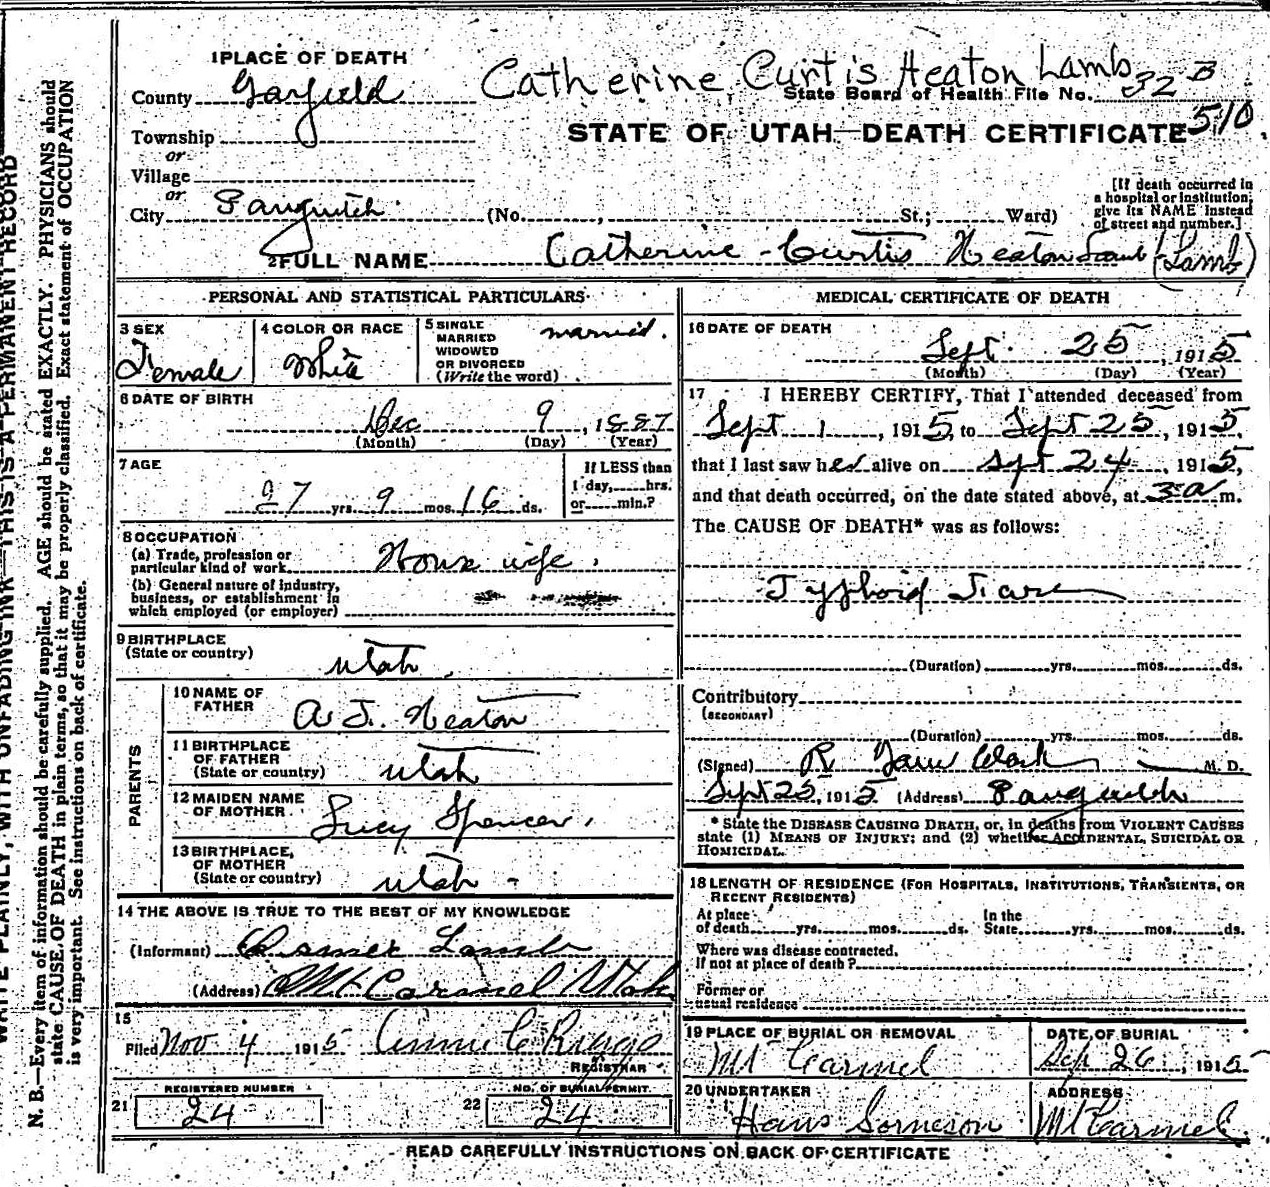 1 PLACE OF DEATH
Catherine Curtis Heaton Lamb
County Garfield
State Board of Health File No. 32 B
510.
STATE OF UTAH—DEATH CERTIFICATE
Township
or
Village
or
City Panguitch
(No. , St.; Ward)
[If death occurred in a hospital or institution, give its NAME instead of street and number.]
2 FULL NAME Catherine Curtis Heaton Lamb (Lamb)
PERSONAL AND STATISTICAL PARTICULARS
3 SEX
Female
4 COLOR OR RACE
White
5 SINGLE MARRIED WIDOWED OR DIVORCED (Write the word)
married.
6 DATE OF BIRTH
Dec 9, 1887
(Month) (Day) (Year)
7 AGE
27 yrs. 9 mos. 16 ds.
If LESS than 1 day, hrs. or min.?
8 OCCUPATION
(a) Trade, profession or particular kind of work House wife.
(b) General nature of industry, business, or establishment in which employed (or employer)
9 BIRTHPLACE (State or country)
Utah
PARENTS
10 NAME OF FATHER A. J. Heaton
11 BIRTHPLACE OF FATHER (State or country) Utah
12 MAIDEN NAME OF MOTHER Lucy Spencer.
13 BIRTHPLACE, OF MOTHER (State or country) Utah -
14 THE ABOVE IS TRUE TO THE BEST OF MY KNOWLEDGE
(Informant) Lamb
(Address) Mt Carmel Utah
15
Filed Nov 4 1915
REGISTRAR
REGISTERED NUMBER
21 24
NO. OF BURIAL PERMIT.
22 24
MEDICAL CERTIFICATE OF DEATH
16 DATE OF DEATH
Sept. 25, 1915
(Month) (Day) (Year)
17 I HEREBY CERTIFY, That I attended deceased from
Sept 1, 1915, to Sept 25, 1915,
that I last saw her alive on Spt 24, 1915,
and that death occurred, on the date stated above, at 3 a m.
The CAUSE OF DEATH* was as follows:
Typhoid
(Duration) yrs. mos. ds.
Contributory
(SECONDARY)
(Duration) yrs. mos. ds.
(Signed) R Clark M. D.
Sept 25, 1915 (Address) Panguitch
* State the DISEASE CAUSING DEATH, or, in deaths from VIOLENT CAUSES
state (1) MEANS OF INJURY; and (2) whether ACCIDENTAL, SUICIDAL OR
HOMICIDAL.
18 LENGTH OF RESIDENCE (FOR HOSPITALS, INSTITUTIONS, TRANSIENTS, OR
RECENT RESIDENTS)
At place of death yrs. mos. ds. In the State yrs. mos. ds.
Where was disease contracted,
If not at place of death?
Former or
usual residence
19 PLACE OF BURIAL OR REMOVAL
Mt Carmel
DATE OF BURIAL
Sep 26, 1915
20 UNDERTAKER
Hans Sorneson
ADDRESS
Mt Carmel
READ CAREFULLY INSTRUCTIONS ON BACK OF CERTIFICATE
WRITE PLAINLY, WITH UNFADING INK—THIS IS A PERMANENT RECORD
N. B.—Every item of information should be carefully supplied. AGE should be stated EXACTLY. PHYSICIANS should
state CAUSE OF DEATH in plain terms, so that it may be properly classified. Exact statement of OCCUPATION
is very important. See instructions on back of certificate.